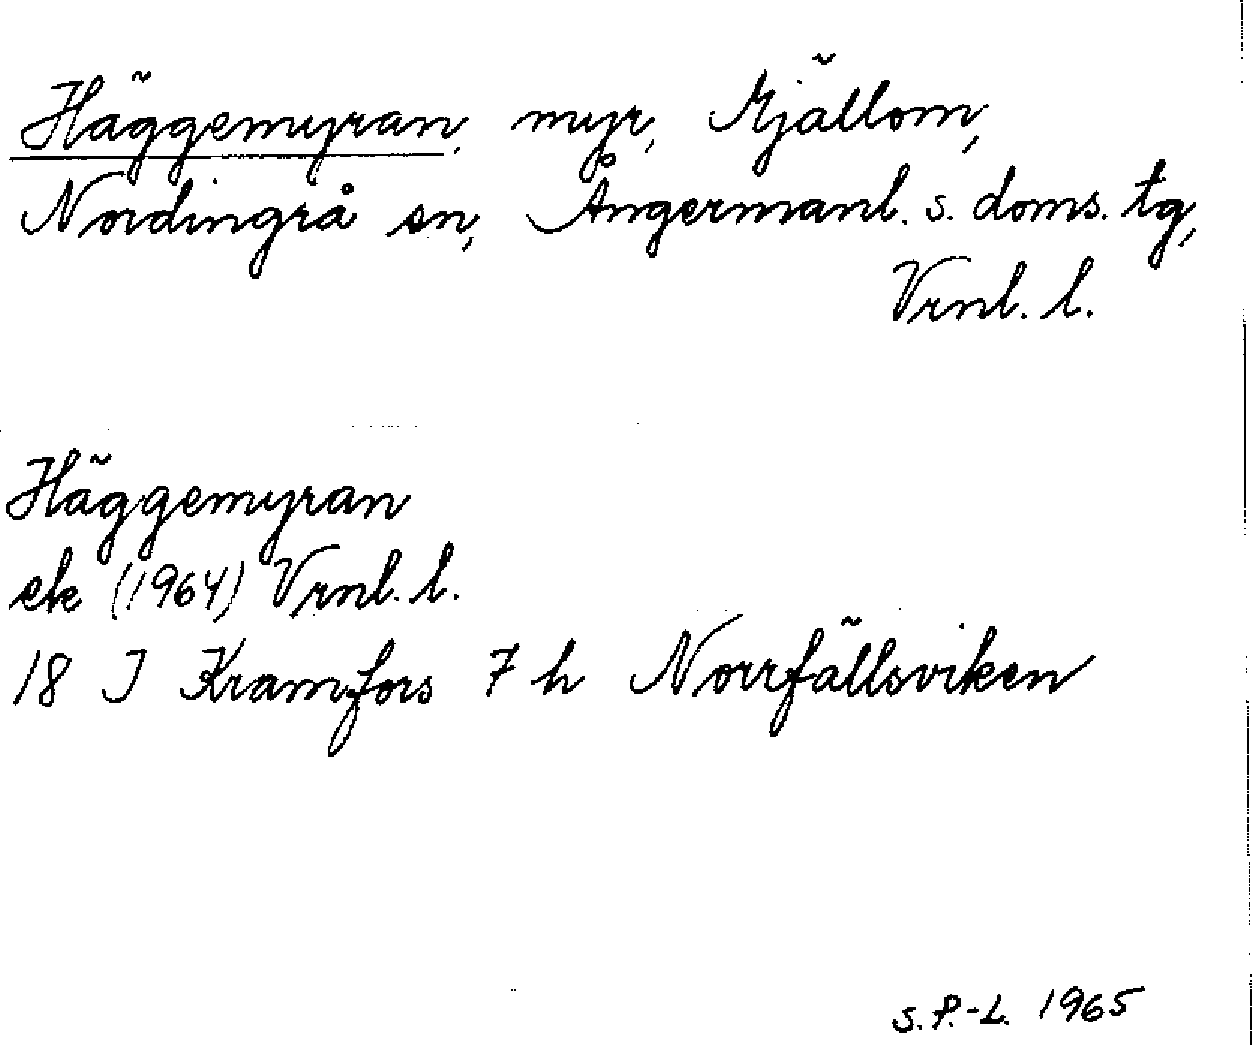 Häggemyran, myr, Mjällom,
Nordingrå sn, Ångermanl. s. doms. tg,
Vrnl. l.
Häggemyran
ek (1964) Vrnl. l.
18 J Kramfors 7 h Norrfällsviken
S. P.-L. 1965